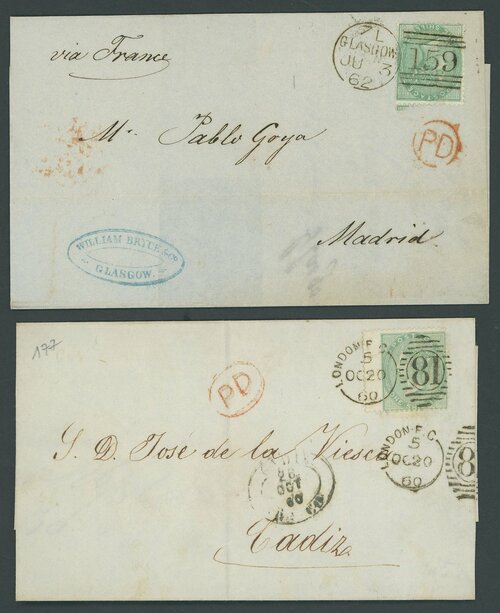 via France
L
GLASGOW
JU 3
62
159
PD
Mr. Pablo Goya
WILLIAM BRYCE & Co
GLASGOW.
Madrid
177
PD
LONDON·E.C
5
OC20
60
81
S. D. Jose de la Viesca
LONDON·E.C
5
OC20
60
8
OCT
60
Cadiz